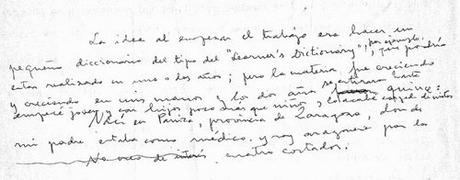 La idea al empezar el trabajo era hacer un
pequeño diccionario del tipo del "Learner's Dictionary", por ejemplo, que podría
estar realizado en uno o dos años; pero la materia fue creciendo
y creciendo en mis manos y los dos años se estiraron hasta quince:
empecé joven y con hijos poco más que niños y lo acabé
Nací en Paniza, provincia de Zaragoza, donde
mi padre estaba como médico, y soy aragonesa por los
cuatro costados.